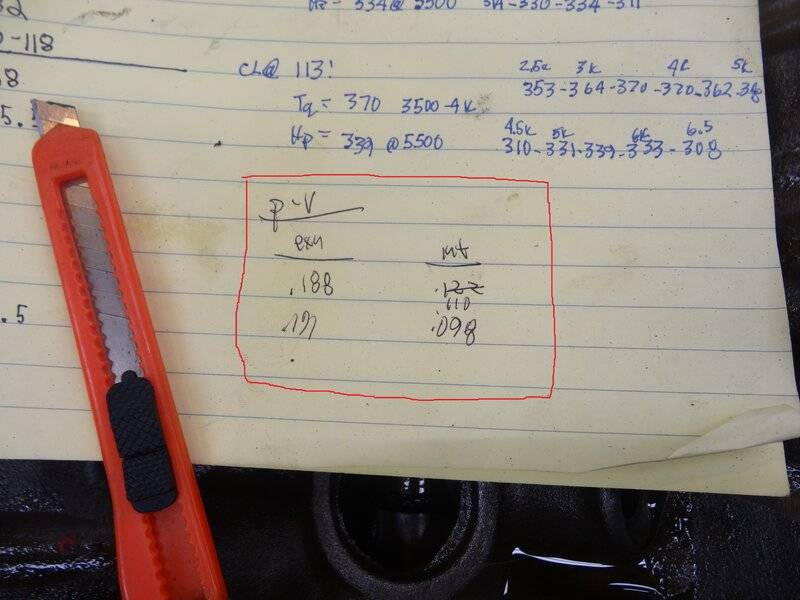 Hp = 334@5500 314-330-334-311
-118
CL@ 113!
2.5k 3k 4k 5k
353-364-370-370-362-
Tq = 370 3500-4k
4.5k 5k 6k 6.5
Hp = 339 @5500 310-331-339-333-308
p-V
exh int
.188 .122
110
.098
.5